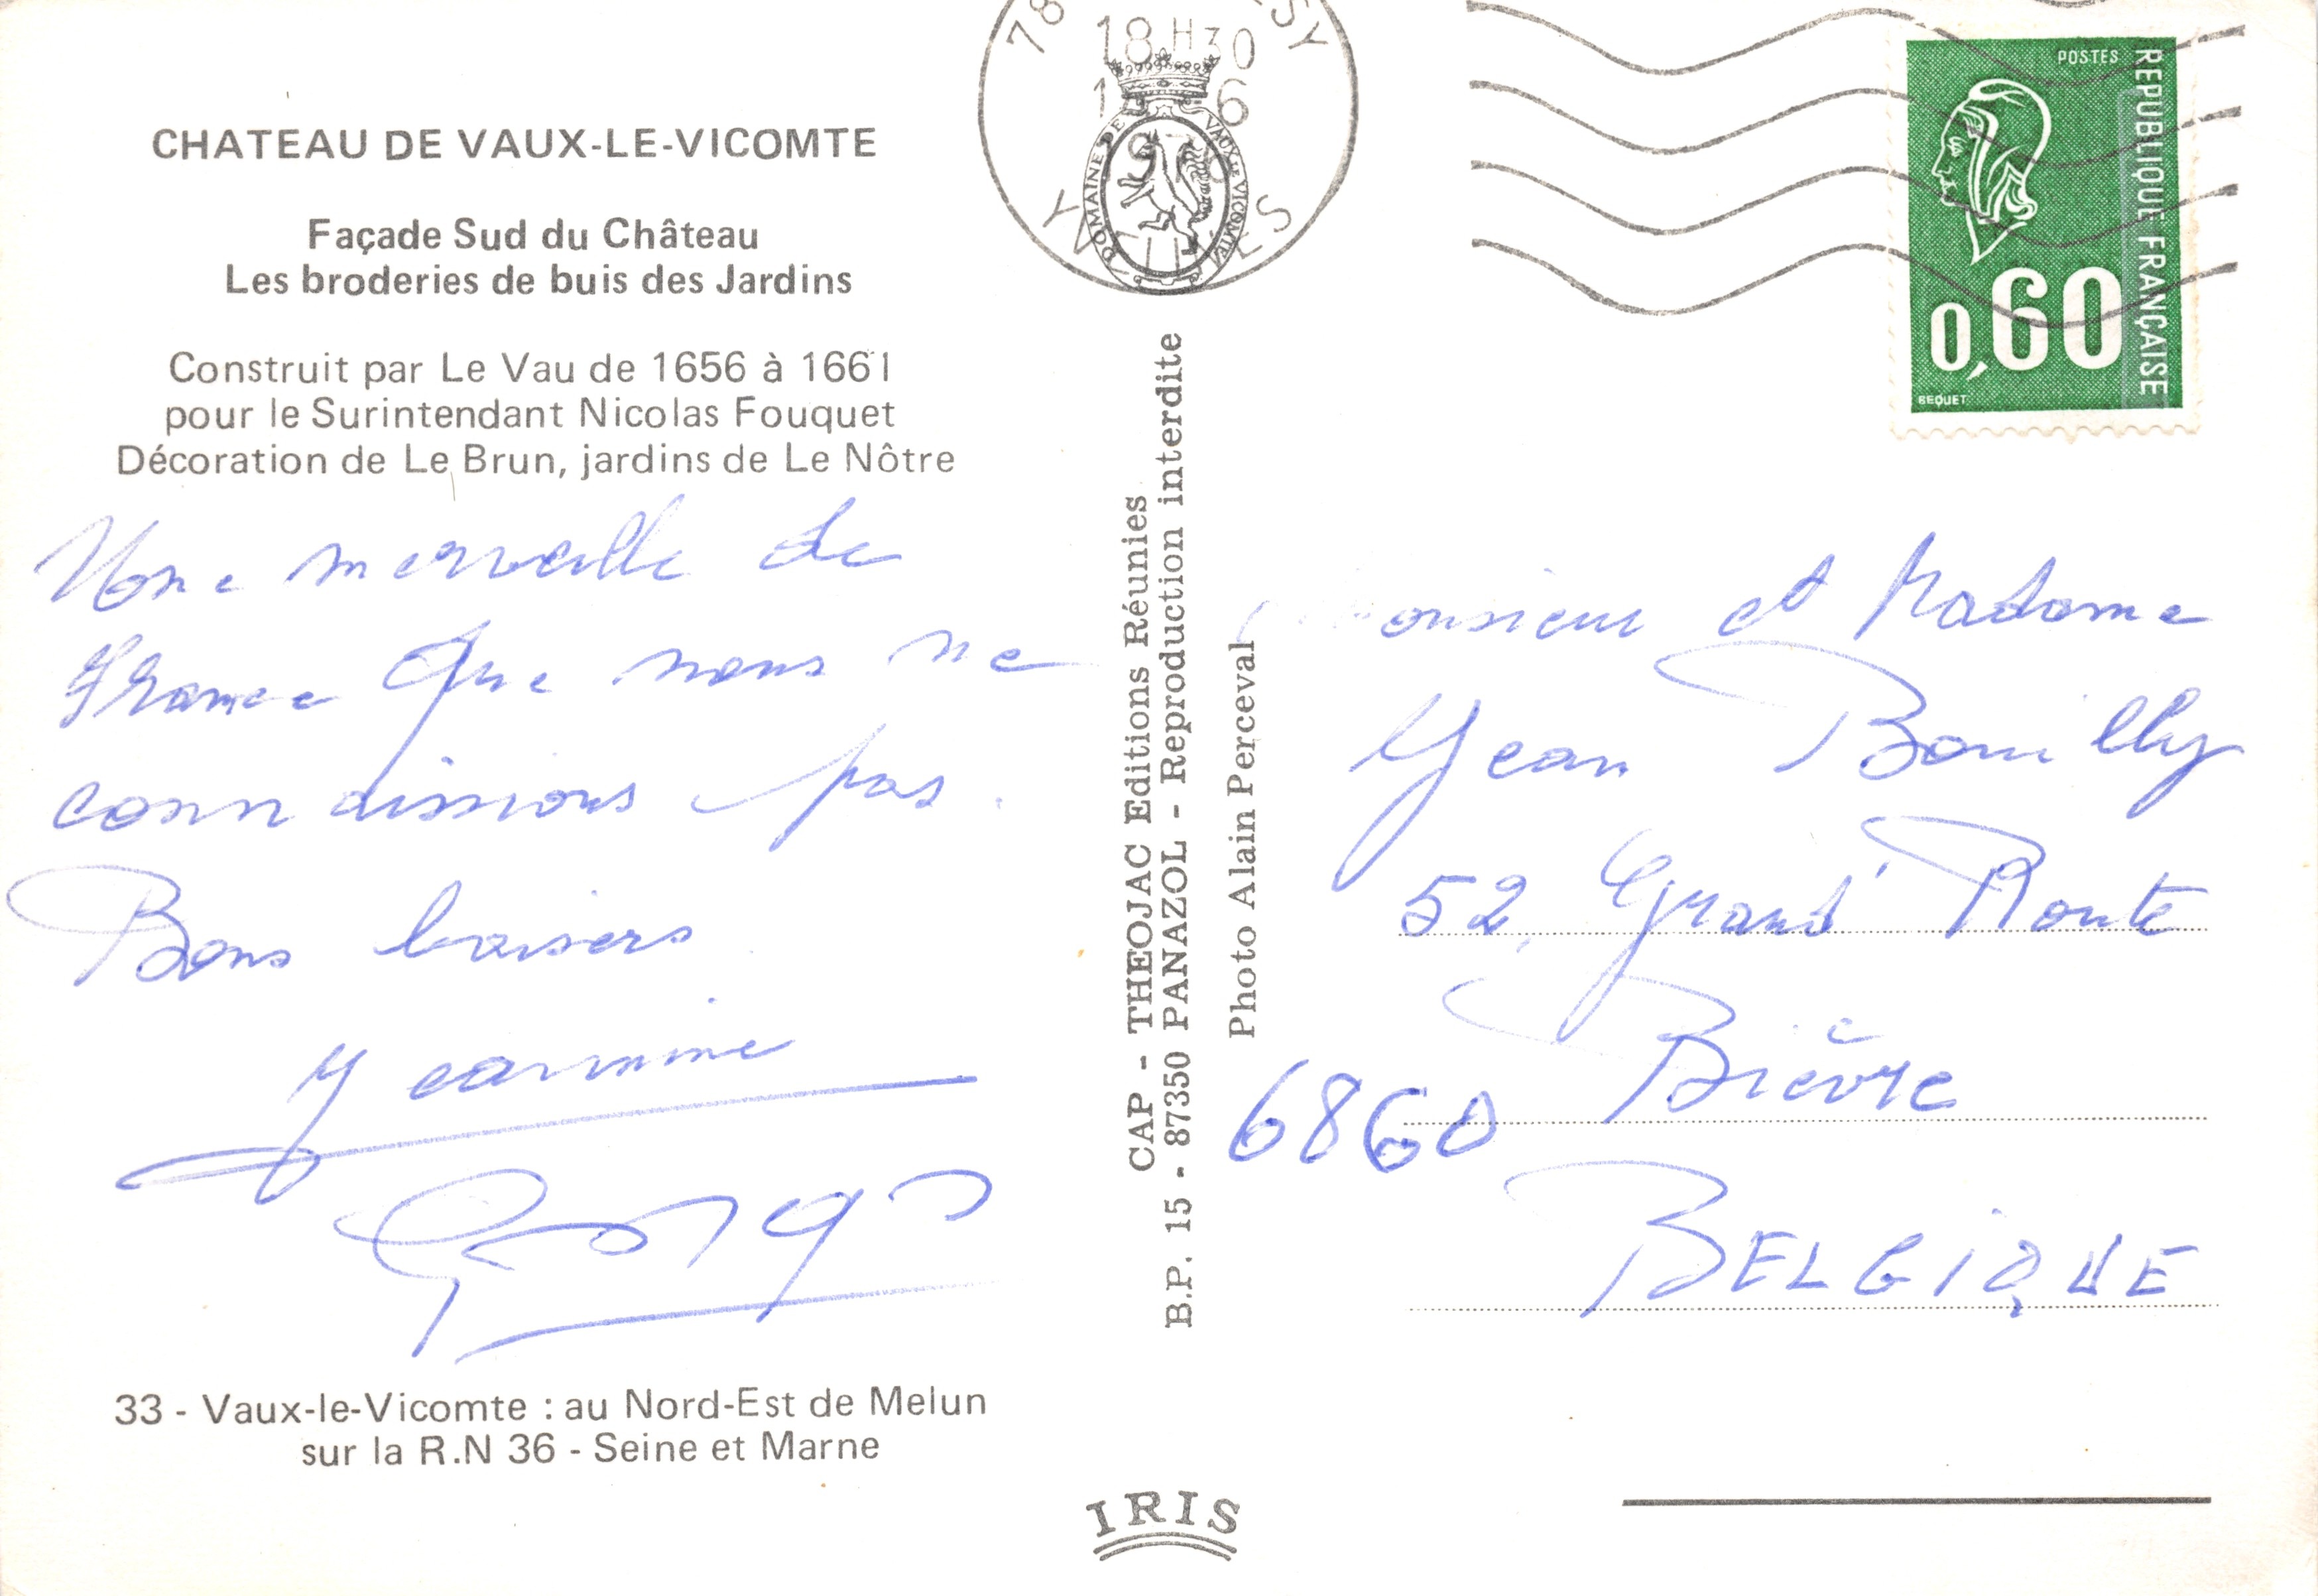 CHATEAU DE VAUX-LE-VICOMTE
Façade Sud du Château
Les broderies de buis des Jardins
Construit par Le Vau de 1656 à 1661
pour le Surintendant Nicolas Fouquet
Décoration de Le Brun, jardins de Le Nôtre
Une merveille de
France que nous ne
connaissions pas.
Bons baisers
Jeannine
33 - Vaux-le-Vicomte : au Nord-Est de Melun
sur la R.N 36 - Seine et Marne
78
18 H 30
6
YVELINES
DOMAINE DE VAUX LE VICOMTE
CAP - THEOJAC Editions Réunies
B.P. 15 - 87350 PANAZOL - Reproduction interdite
Photo Alain Perceval
IRIS
POSTES
REPUBLIQUE FRANÇAISE
0,60
BEQUET
Monsieur et Madame
Jean Bouilly
52, Grand' Route
Bièvre
6860
BELGIQUE